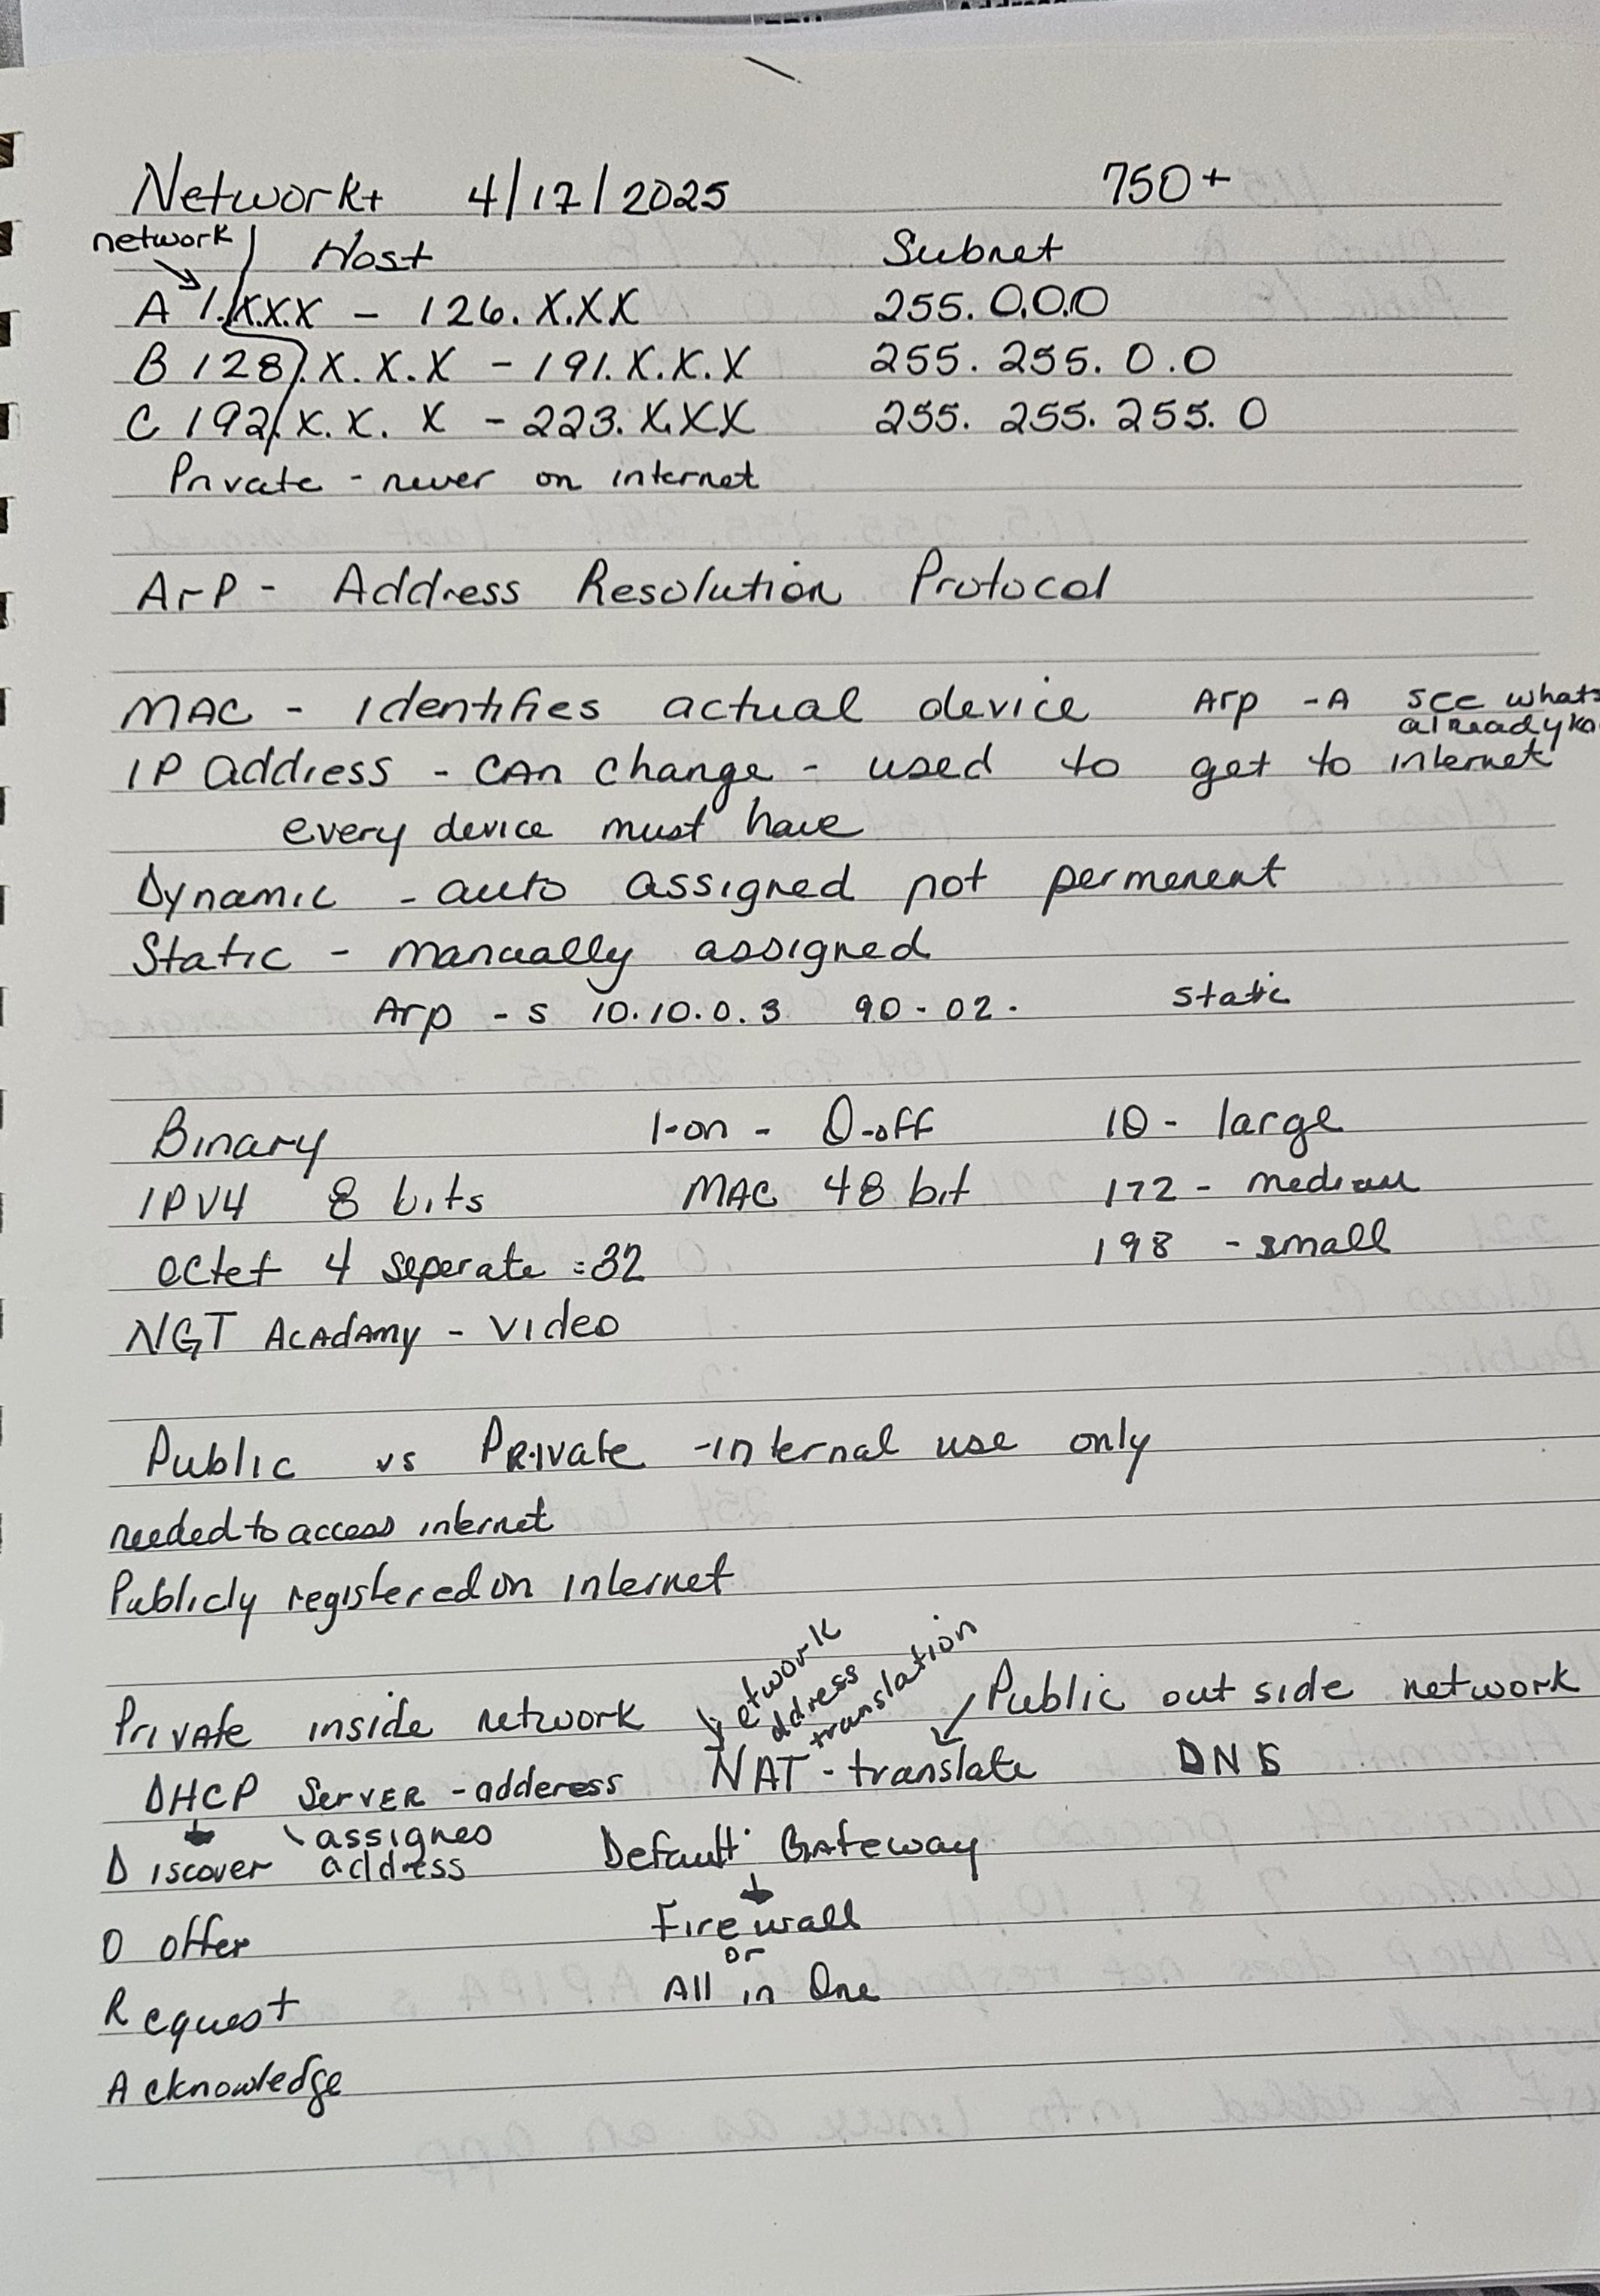 Network+ 4/17/2025 750+
network Host Subnet
A 1.X.X.X - 126.X.X.X 255.0.0.0
B 128.X.X.X - 191.X.X.X 255.255.0.0
C 192.X.X.X - 223.X.X.X 255.255.255.0
Private - never on internet
ArP - Address Resolution Protocol
MAC - Identifies actual device Arp -A see whats
already
IP address - CAN change - used to get to internet
every device must have
Dynamic - auto assigned not permenent
Static - manually assigned
Arp -s 10.10.0.3 90-02- static
Binary 1-on - 0-off 10 - large
IPV4 8 bits MAC 48 bit 172 - medium
octet 4 seperate = 32 198 - small
NGT ACADAMY - Video
Public vs PRIvate - internal use only
needed to access internet
Publicly registered on internet
etwork
ddress
translation
PriVAte inside network Public out side network
DHCP SerVER - adderess NAT - translate DNS
assignes
Discover address Default Gateway
O offer Firewall
or
Request All in One
Acknowledge